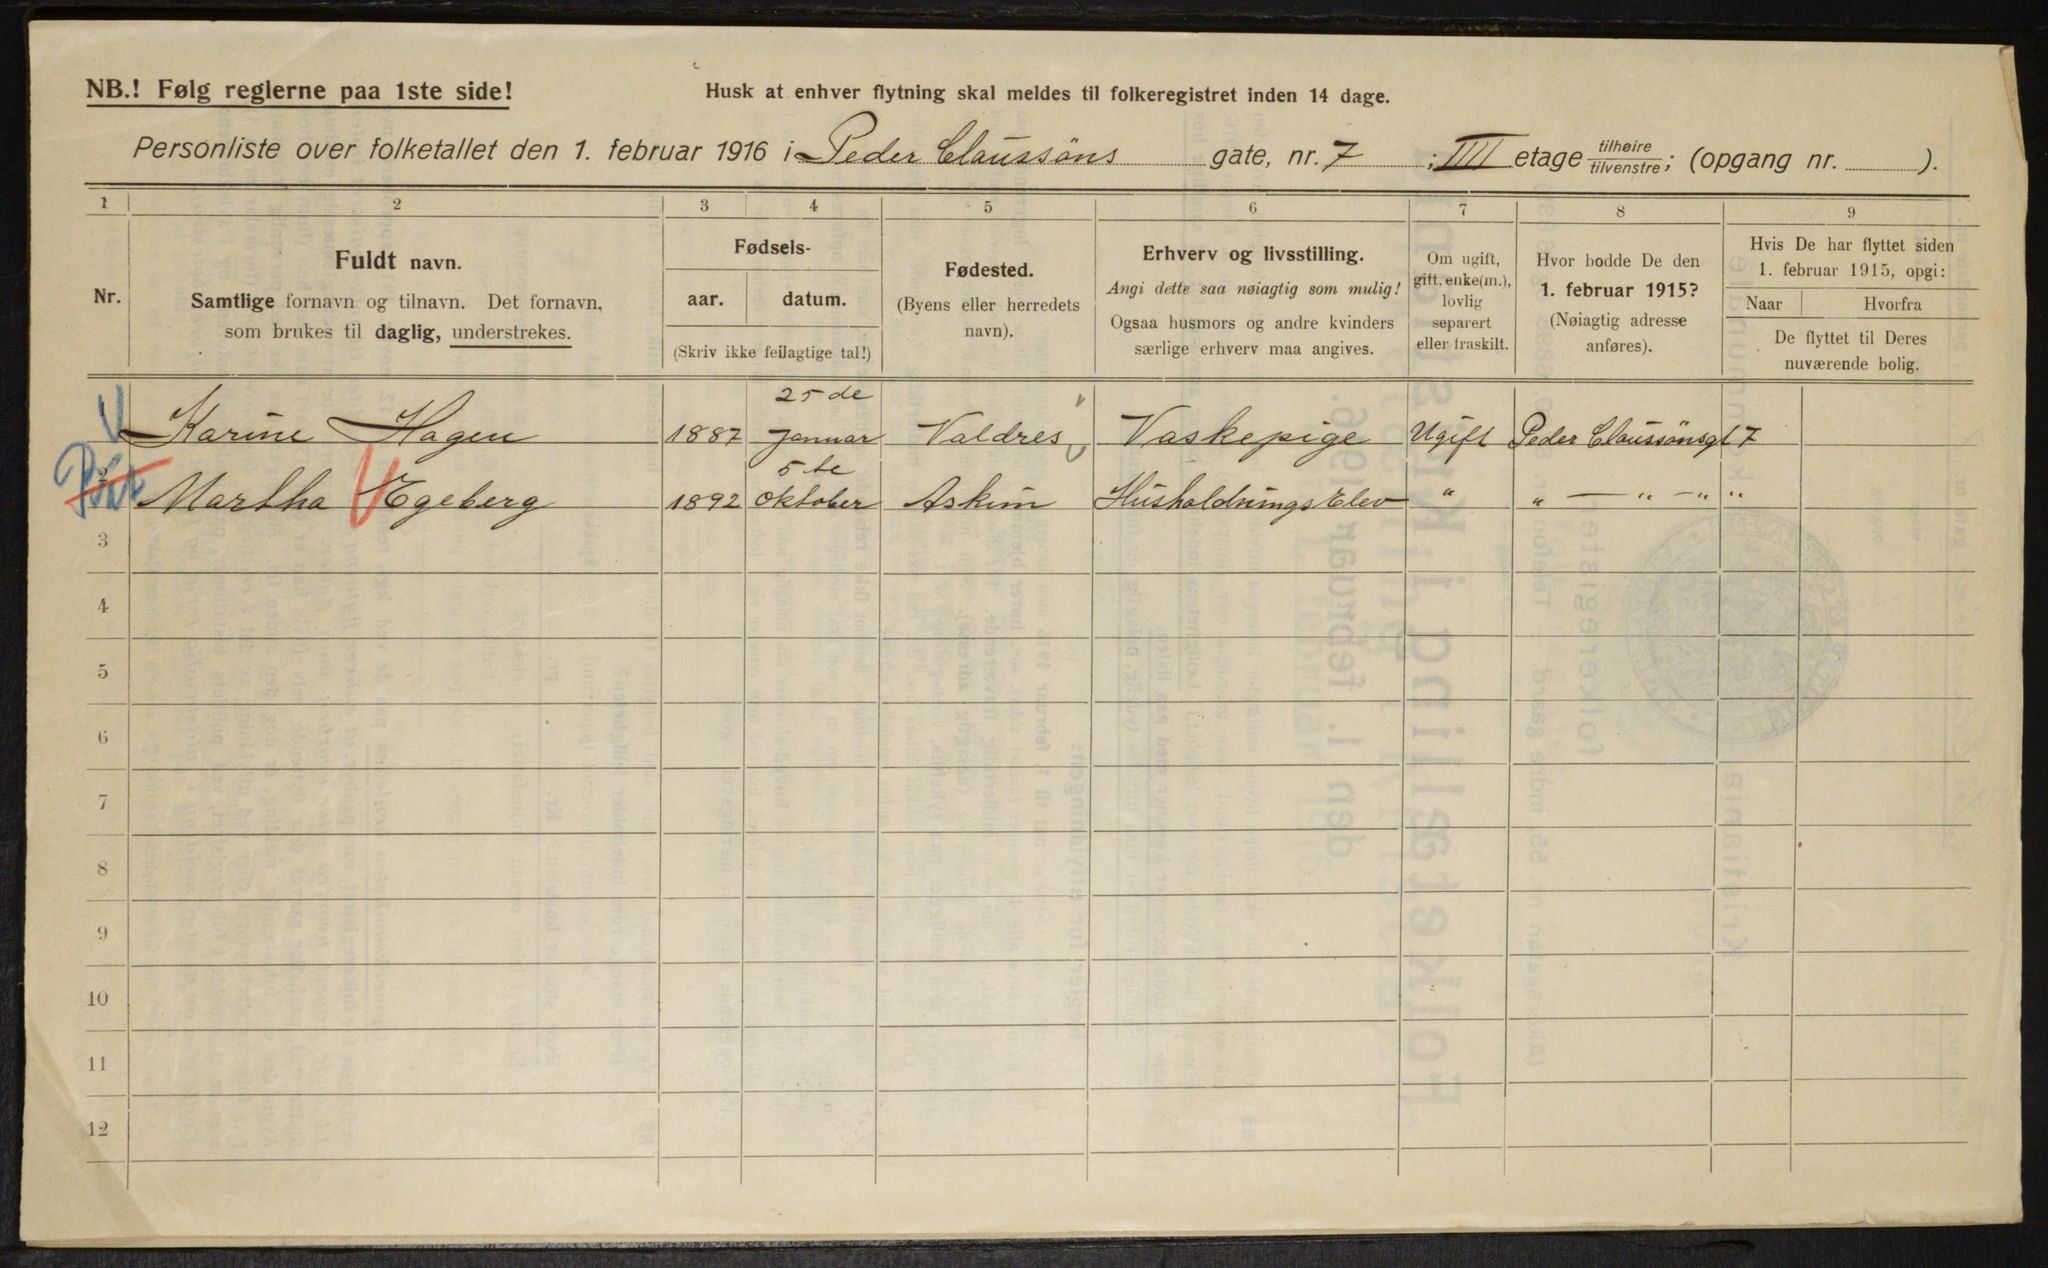 NB.! Følg reglerne paa 1ste side!
Husk at enhver flytning skal meldes til folkeregistret inden 14 dage.
Personliste over folketallet den 1. februar 1916 i Peder Claussöns gate, nr. 7 ; III etage tilhøire tilvenstre; (opgang nr. ).
1 2 3 4 5 6 7 8 9
Nr.
Fuldt navn.
Samtlige fornavn og tilnavn. Det fornavn,
som brukes til daglig, understrekes.
Fødsels-
aar. datum.
(Skriv ikke feilagtige tal!)
Fødested.
(Byens eller herredets
navn).
Erhverv og livsstilling.
Angi dette saa nøiagtig som mulig!
Ogsaa husmors og andre kvinders
særlige erhverv maa angives.
Om ugift,
gift, enke(m.),
lovlig
separert
eller fraskilt.
Hvor bodde De den
1. februar 1915?
(Nøiagtig adresse
anføres).
Hvis De har flyttet siden
1. februar 1915, opgi:
Naar Hvorfra
De flyttet til Deres
nuværende bolig.
25 de
Karine Hagen 1887 Januar Valdres Vaskepige Ugift Peder Claussönsgt 7
5 te
2 Martha Egeberg 1892 Oktober Askim Husholdnings Elev " " — " — " "
3
4
5
6
7
8
9
10
11
12